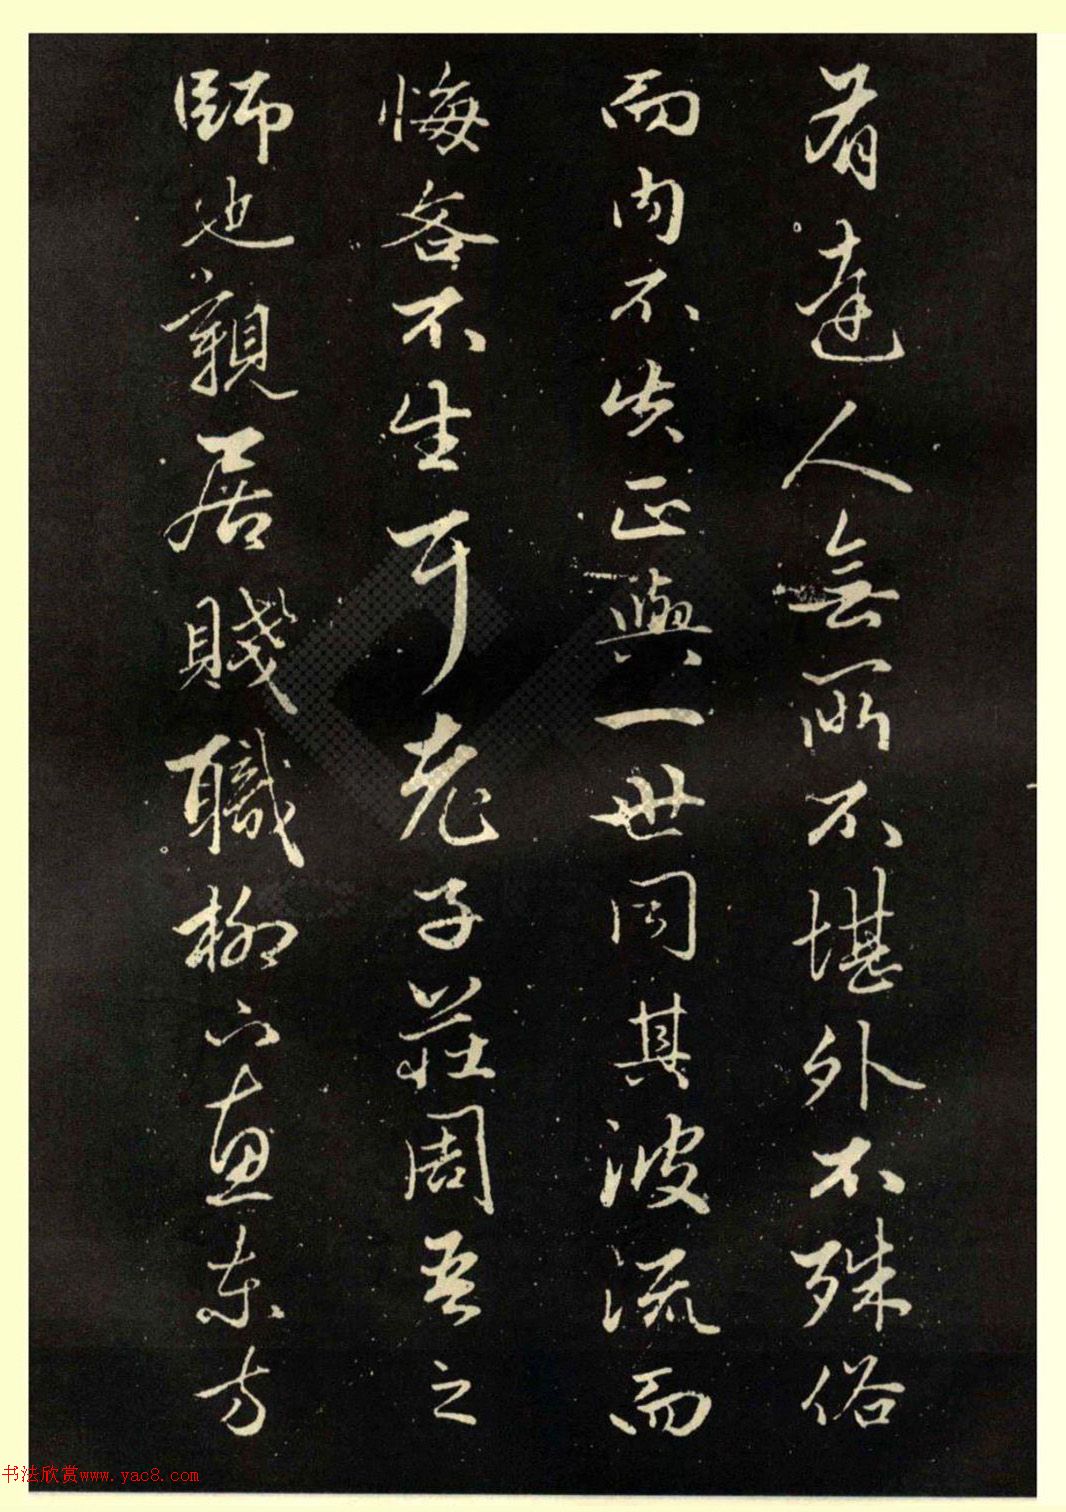 有達人無所不堪外不殊俗
而内不失正與一世同其波流而
悔吝不生耳老子莊周吾之
師也親居賤職柳下惠東方
书法欣赏www.yac8.com